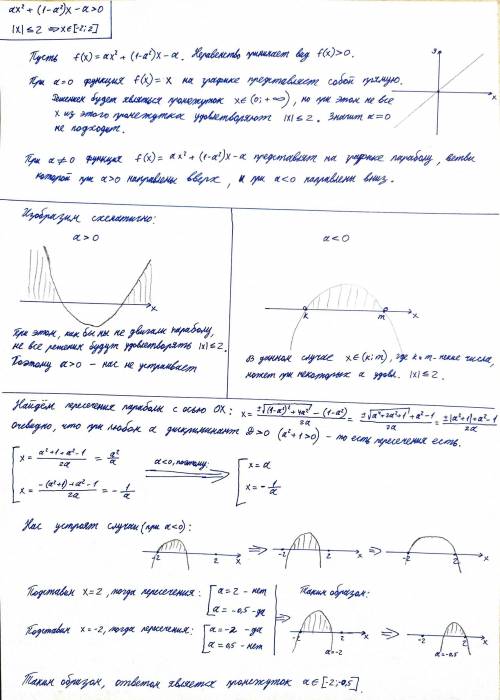 ax² + (1-a²)x - a > 0
|x| ≤ 2 ⇔ x∈[-2;2]
Пусть f(x) = ax² + (1-a²)x - a. Неравенство принимает вид f(x) > 0.
При a=0 функция f(x) = x на графике представляет собой прямую.
Решением будет являться промежуток x∈(0;+∞), но при этом не все
x из этого промежутка удовлетворяют |x| ≤ 2. Значит a=0
не подходит.
y
x
При a≠0 функция f(x) = ax² + (1-a²)x - a представляет на графике параболу, ветви
которой при a>0 направлены вверх, и при a<0 направлены вниз.
Изобразим схематично:
a > 0
x
При этом, как бы мы не двигали параболу,
не все решения будут удовлетворять |x| ≤ 2.
Поэтому a>0 – нас не устраивает
a < 0
k
m
x
В данном случае x∈(k;m), где k и m - некие числа,
может при некоторых a удовл. |x| ≤ 2.
Найдём пересечения параболы с осью OX: x = (±√((1-a²)²+4a²) - (1-a²))/2a = (±√(a⁴+2a²+1) + a²-1)/2a = (±|a²+1| + a²-1)/2a
очевидно, что при любом a дискриминант D>0 (a²+1>0) - то есть пересечения есть.
[ x = (a²+1+a²-1)/2a = a²/a
x = (-(a²+1)+a²-1)/2a = -1/a
a<0, поэтому:
[ x = a
x = -1/a
Нас устроят случаи (при a<0):
-2 2 x ⇒ -2 2 x ⇒ -2 2 x
Подставим x=2, тогда пересечения: [ a=2 - нет
a = -0,5 - да
Подставим x=-2, тогда пересечения: [ a=-2 - да
a = 0,5 - нет
Таким образом:
-2 2 x
a=-2
-2 2 x
a=-0,5
Таким образом, ответом является промежуток a∈[-2;-0,5].